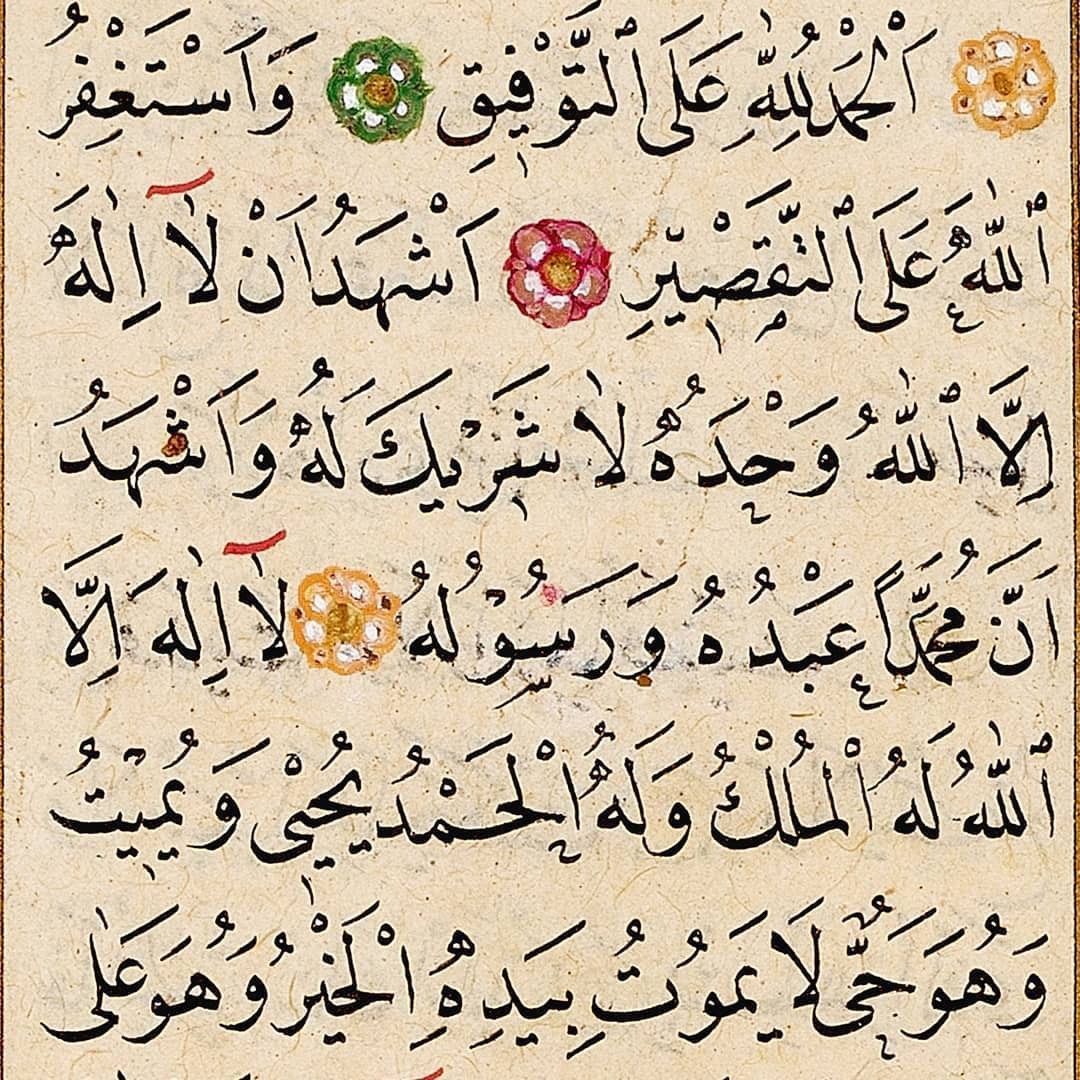 اَلْحَمْدُ لِلّٰهِ عَلَى ٱلتَّوْفِيقِ وَاَسْتَغْفِرُ
ٱللّٰهَ عَلَى ٱلتَّقْصِيرِ اَشْهَدُ اَنْ لٰٓا اِلٰهَ
اِلَّا ٱللّٰهُ وَحْدَهُ لٰا شَرِيكَ لَهُ وَاَشْهَدُ
اَنَّ مُحَمَّدًا عَبْدُهُ وَرَسُولُهُ لٰٓا اِلٰهَ اِلَّا
ٱللّٰهُ لَهُ ٱلْمُلْكُ وَلَهُ ٱلْحَمْدُ يُحْيِى وَيُمِيتُ
وَهُوَ حَىٌّ لَا يَمُوتُ بِيَدِهِ الْخَيْرُ وَهُوَ عَلٰى